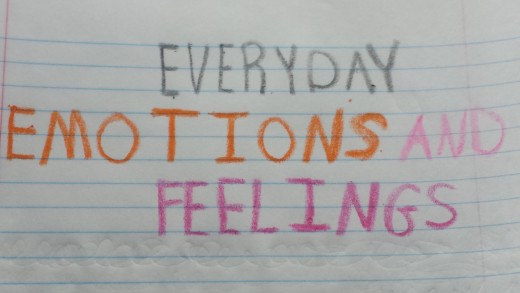 EVERYDAY
EMOTIONS AND
FEELINGS